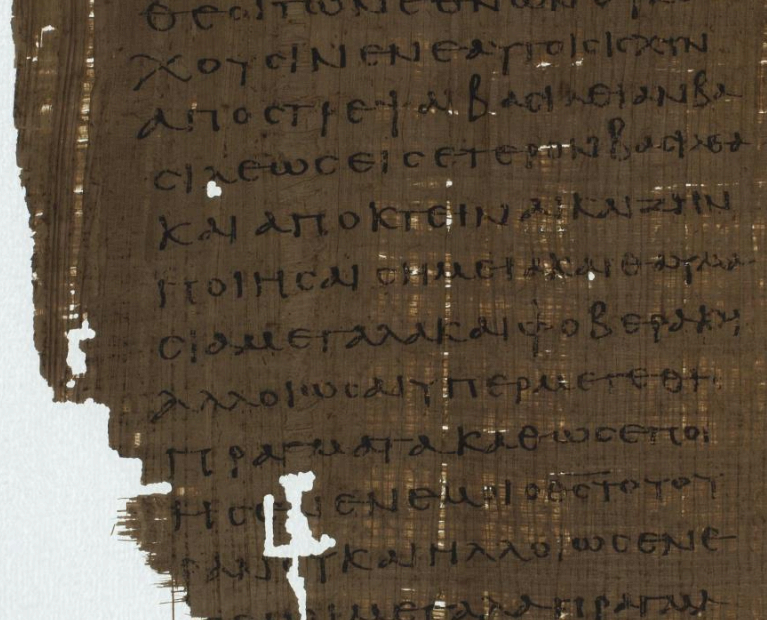 ΘΕΟΙΤΩΝΕΘΝΩΝΟΥΚ
ΧΟΥϹΙΝΕΝΕΑΥΤΟΙϹΙϹΧΥΝ
ΑΠΟϹΤΡΕΨΑΙΒΑϹΙΛΕΙΑΝΒΑ
ϹΙΛΕΩϹΕΙϹΕΤΕΡΟΝΒΑϹΙΛΕΑ
ΚΑΙΑΠΟΚΤΕΙΝΑΙΚΑΙΖΗΝ
ΠΟΙΗϹΑΙϹΗΜΕΙΑΚΑΙΘΑΥΜΑ
ϹΙΑΜΕΓΑΛΑΚΑΙΦΟΒΕΡΑΚΑΙ
ΑΛΛΟΙΩϹΑΙΥΠΕΡΜΕΓΕΘΗ
ΠΡΑΓΜΑΤΑΚΑΘΩϹΕΠΟΙ
ΗϹΕΝΕΝΕΜΟΙΟΘϹΤΟΥΟΥ
ΚΑΙΗΛΛΟΙΩϹΕΝΕ
ΜΕΓΑΛΑΠΡΑΓΜΑ